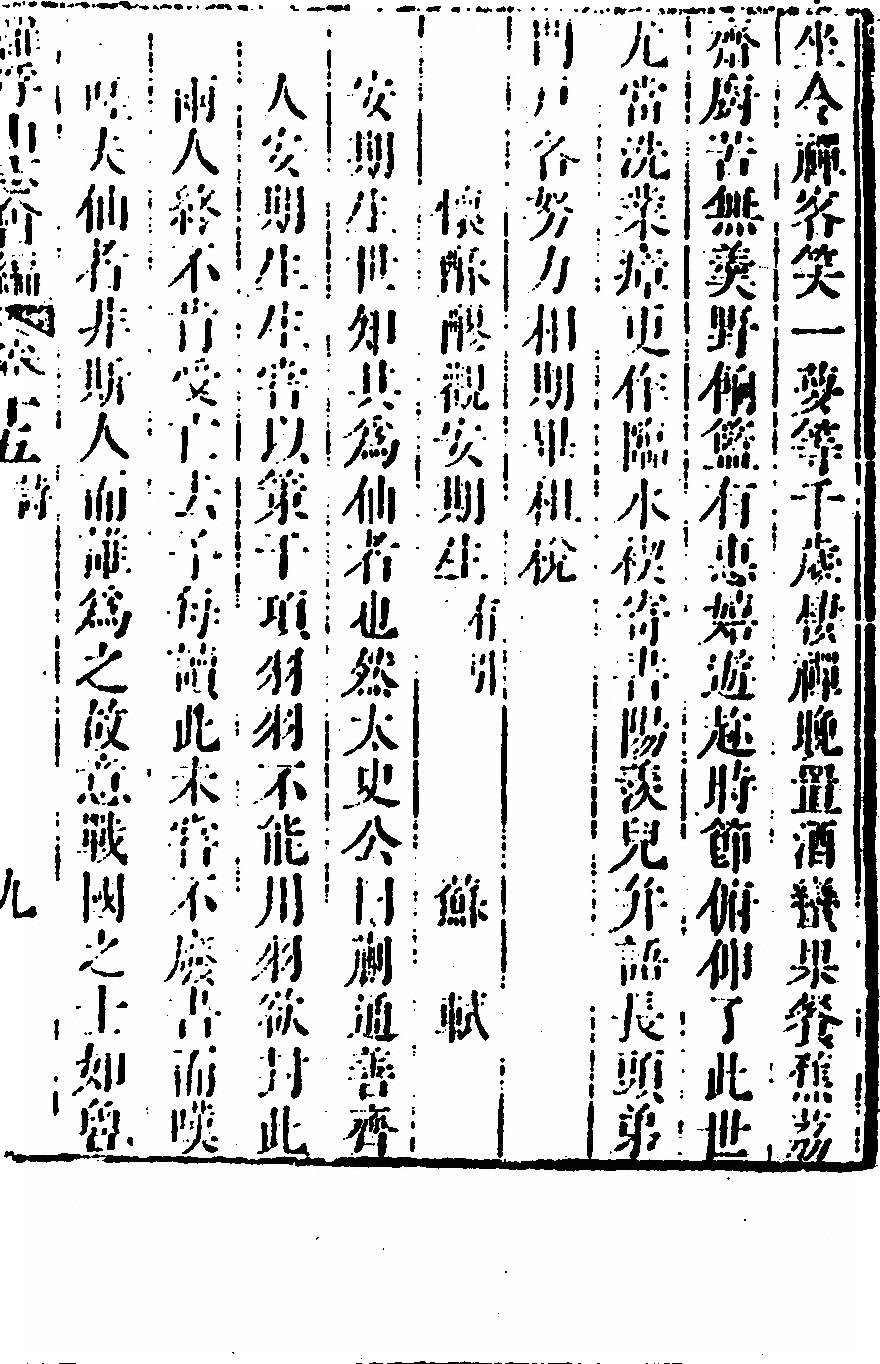 坐令禪客笑一夢等千歲棲禪晚置酒蠻果餐蕉荔
齋厨苦無羹野餉籃有蕙嬉遊趂時節俯仰了此世
尤當洗業瘴更作臨水禊寄書陽羨兒并語長頭弟
門戶各努力相期畢租稅
懷酥醪觀安期生有引 蘇軾
安期生世知其為仙者也然太史公曰蒯通善齊
人安期生生嘗以策干項羽羽不能用羽欲封此
兩人終不肯受亡去予每讀此未嘗不廢書而嘆
嗟夫仙者非斯人而誰為之故意戰國之士如魯
羅浮山志會編 卷十五 詩 九